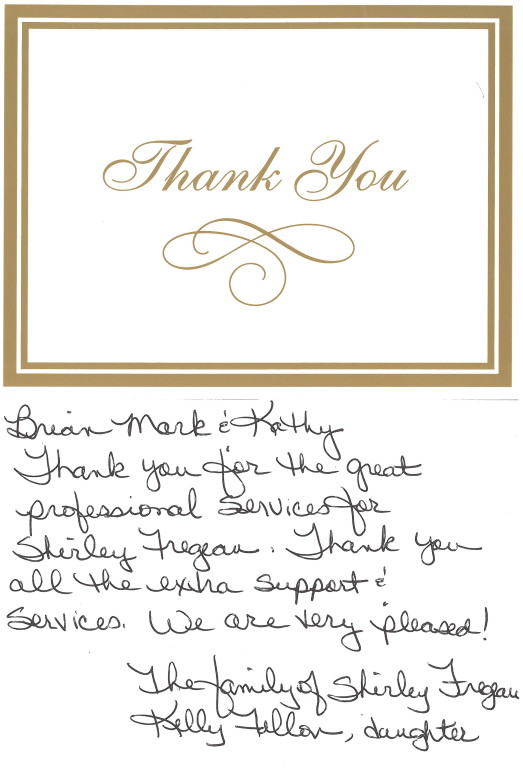 Thank You
Brian Mark & Kathy
Thank you for the great
professional services for
Shirley Fregeau. Thank you
all the extra support &
Services. We are very pleased!
The family of Shirley Fregeau
Kelly , daughter